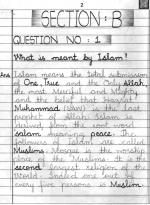 2
SECTION : B
QUESTION NO : 1
What is meant by Islam?
Ans Islam means the total submission
of One, True and the Only Allah,
the most Merciful and Mighty
and the belief that Hazrat
Muhammad (SAW) is the last
prophet of Allah. Islam is
derived from the root word
salam meaning peace. The
followers of Islam are called
Muslims. Mosque is the worship
place of the Muslims. It is the
second largest religion of the
World. Indeed one out of
every five persons is Muslim.